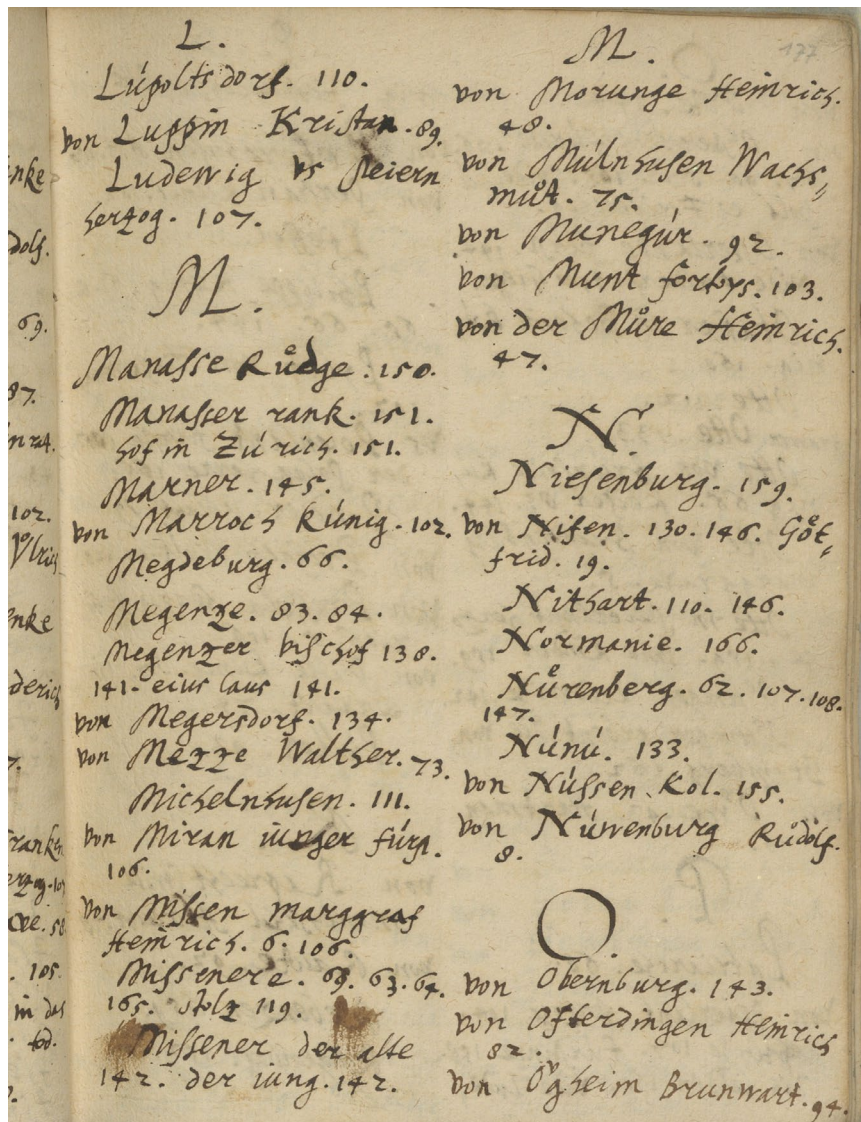 L.
Lúpoltsdorf. 110.
von Luppin Kristan. 89.
Ludewig vs Peiern
hertzog. 107.
M.
Manasse Ruͦdge. 150.
Manasser rank. 151.
hof in Zúrich. 151.
Marner. 145.
von Marroch kúnig. 102.
Megdeburg. 66.
Megenze. 83. 84.
Megenzer bischof 138.
141. eius laus 141.
von Megersdorf. 134.
von Mezze Walther. 73.
Michelnhusen. 111.
von Miran iunger fúrst.
106.
von Missen marggraf
Heinrich. 6. 106.
Missenere. 69. 63. 64.
165. stolz 119.
Missener der alte
142. der iung. 142.
M. 177
von Morunge Heinrich.
48.
von Múlnhusen Wachs„
muͦt. 75.
von Munegúr. 92.
von Munt fortys. 103.
von der Muͦre Heinrich.
47.
N.
Niefenburg. 159.
von Nifen. 130. 146. Goͤt„
frid. 19.
Nithart. 110. 146.
Normanie. 166.
Nuͦrenberg. 62. 107. 108.
147.
Núnú. 133.
von Nússen Kol. 155.
von Núwenburg Ruͦdolf.
8.
O.
von Obernburg. 143.
von Ofterdingen Heinrich
82.
von Oͮgheim Brunwart. 94.
nke
dolf.
69.
87.
nrat.
102.
Vͦlrich
enke
derich
7.
franken
ertzog. 10
we. 58
. 105.
in das
. tod.